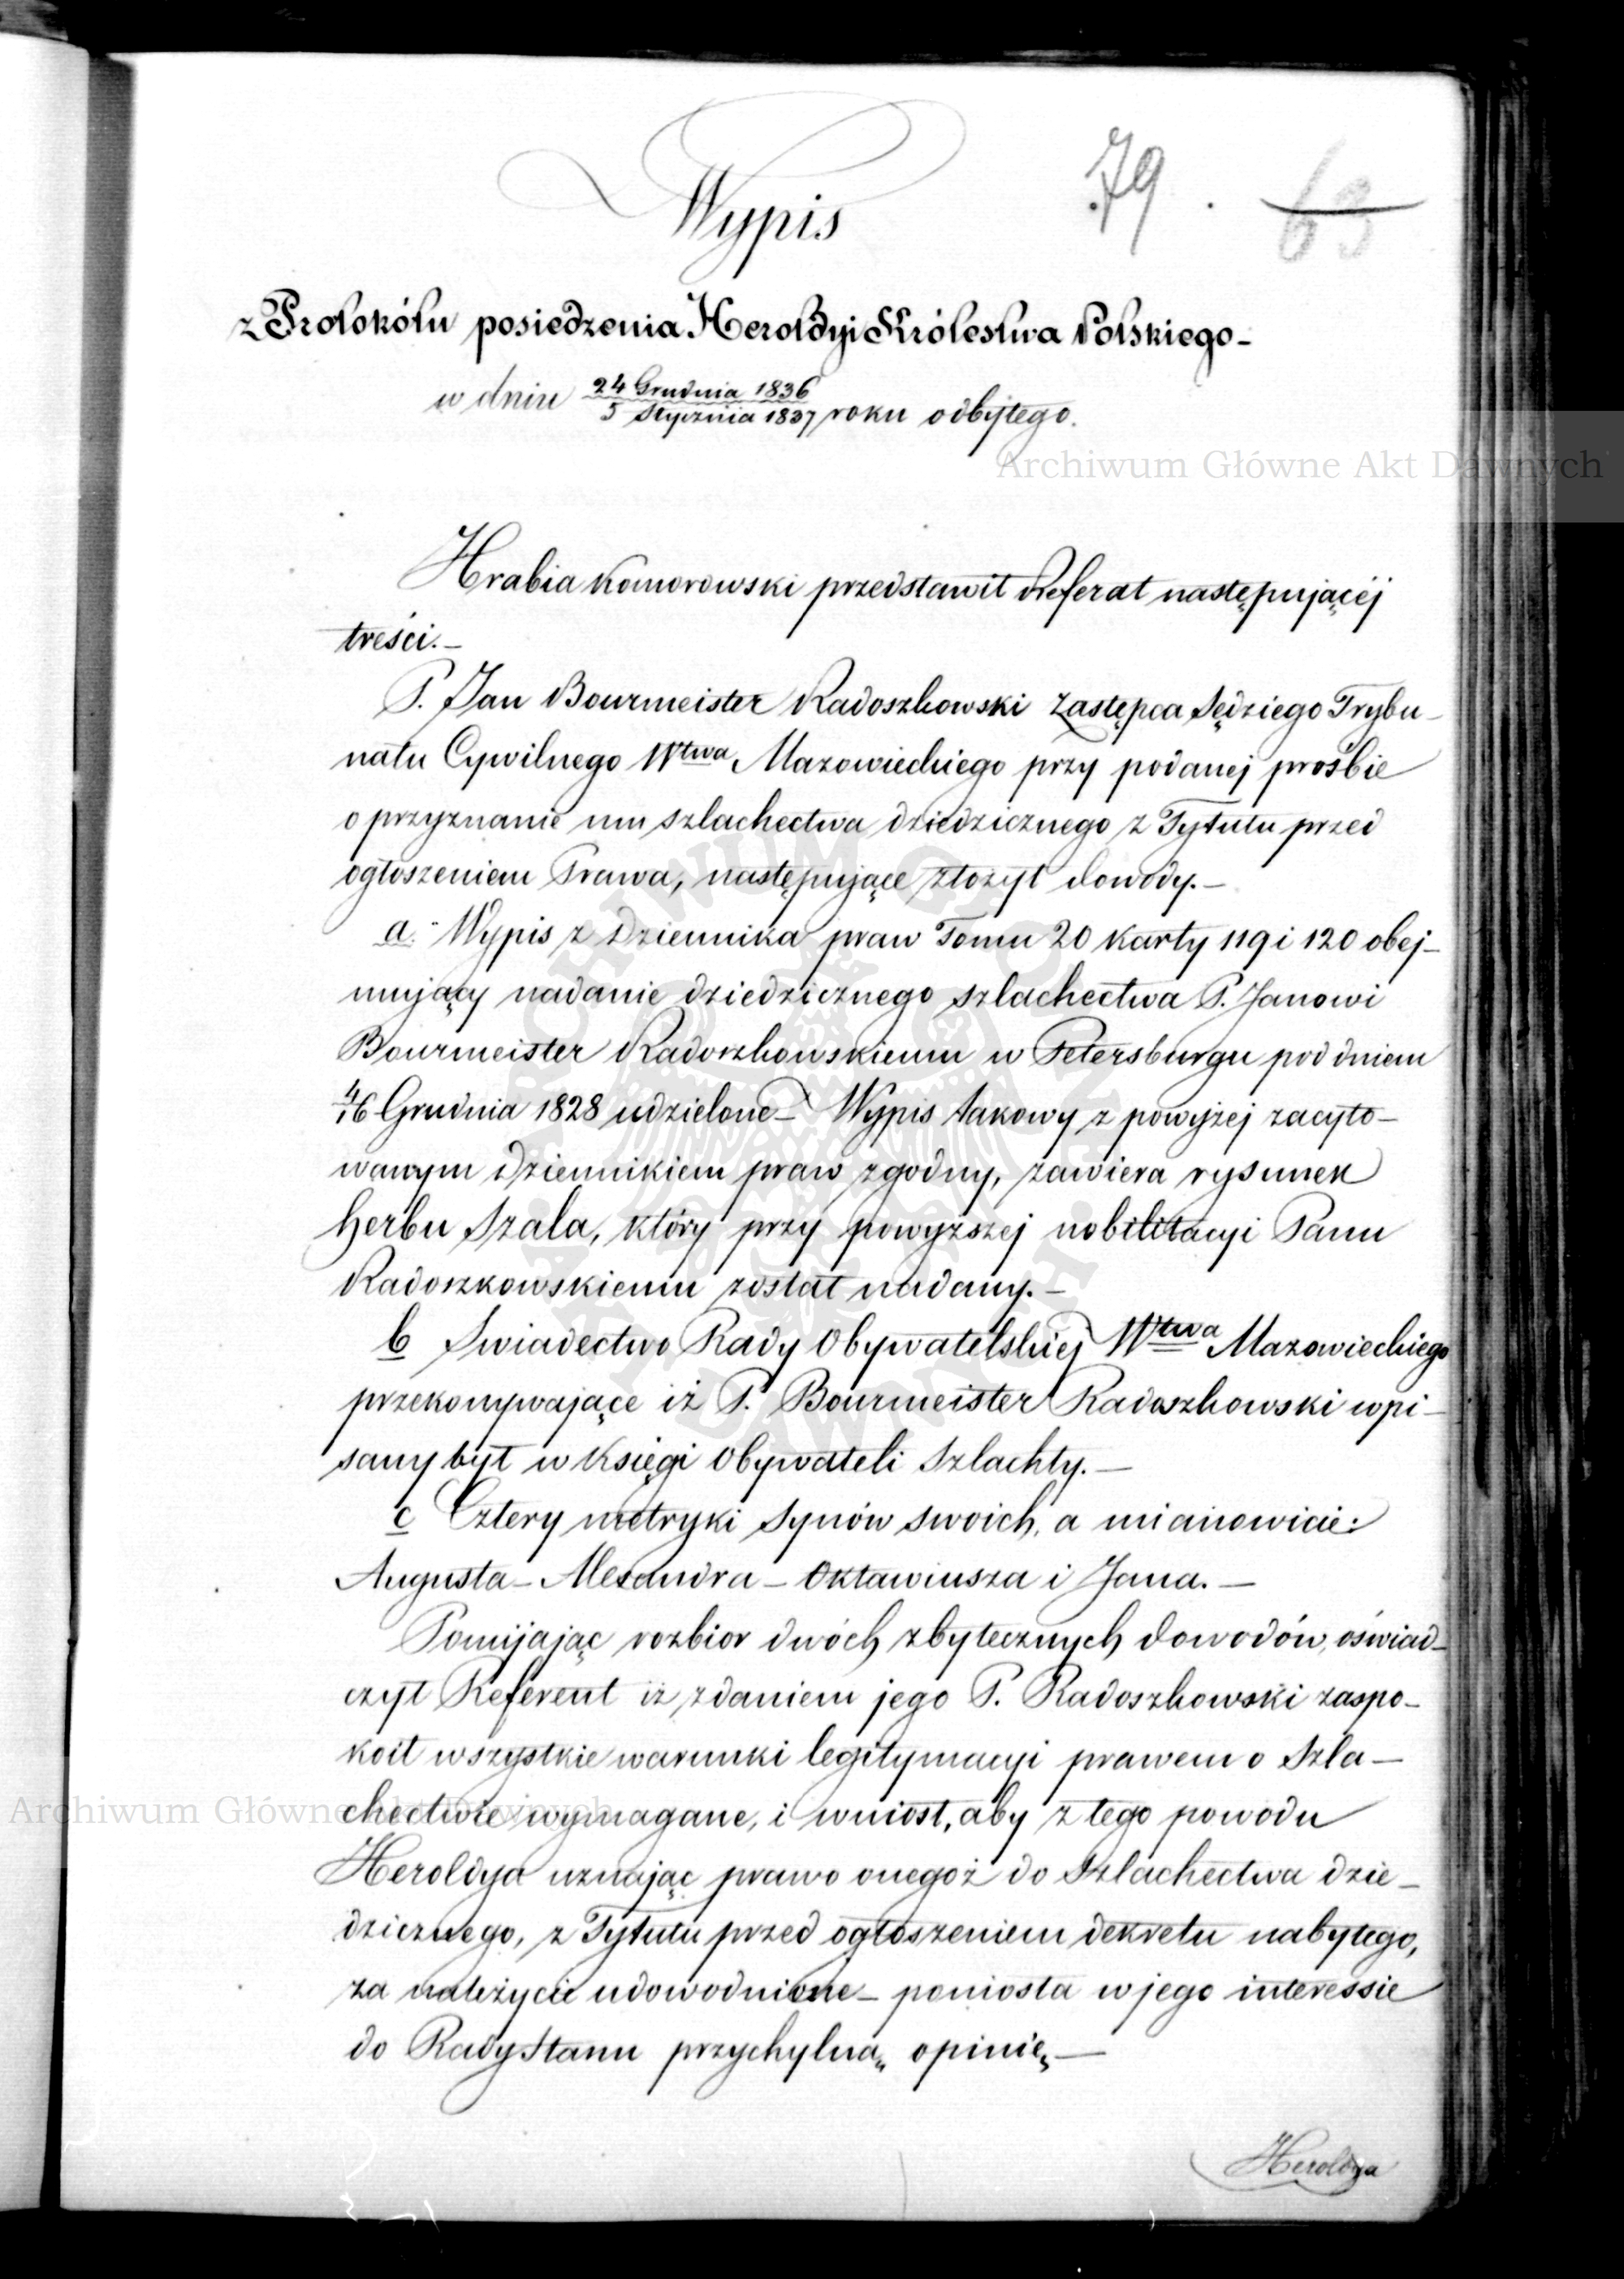 Wypis
79.
63
z Protokółu posiedzenia Heroldyi Królestwa Polskiego -
w dniu 24 Grudnia 1836 / 5 Stycznia 1837 roku odbytego.
Archiwum Główne Akt Dawnych
Hrabia Komorowski przedstawił Referat następującéj
treści. -
P. Jan Bourmeister Radoszkowski Zastępca Sędziego Trybu-
nału Cywilnego Wtwa Mazowieckiego przy podanej prośbie
o przyznanie mu szlachectwa dziedzicznego z Tytułu przed
ogłoszeniem Prawa, następujące złożył dowody. -
a. Wypis z Dziennika praw Tomu 20 karty 119 i 120 obej-
mujący nadanie dziedzicznego szlachectwa P. Janowi
Bourmeister Radoszkowskiemu w Petersburgu pod dniem
4/16 Grudnia 1828 udzielone - Wypis takowy z powyżej zacyto-
wanym Dziennikiem praw zgodny, zawiera rysunek
herbu Szala, który przy powyższej nobilitacyi Panu
Radoszkowskiemu został nadany. -
b Swiadectwo Rady Obywatelskiej Wtwa Mazowieckiego
przekonywające iż P. Bourmeister Radoszkowski wpi-
sany był w Księgi Obywateli Szlachty. -
c Cztery metryki Synów swoich, a mianowicie:
Augusta - Alexandra - Oktawiusza i Jana. -
Pomijając rozbior dwóch zbytecznych dowodów, oświad-
czył Referent iż zdaniem jego P. Radoszkowski zaspo-
koił wszystkie warunki legitymacyi prawem o Szla-
chectwie wymagane, i wniosł, aby z tego powodu
Archiwum Główne Akt Dawnych
Heroldya uznając prawo onegoż do Szlachectwa dzie-
dzicznego, z Tytułu przed ogłoszeniem dekretu nabytego,
za należycie udowodnione - poniosła w jego interessie
do Rady Stanu przychylną opinię, -
Heroldya